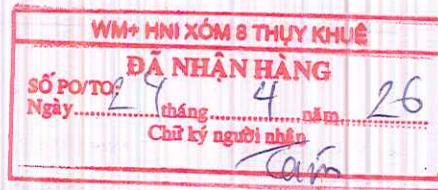 WM+ HNI XÓM 8 THỤY KHUÊ
ĐÃ NHẬN HÀNG
SỐ PO/TO:
Ngày 24 tháng 4 năm 26
Chữ ký người nhận
Tâm